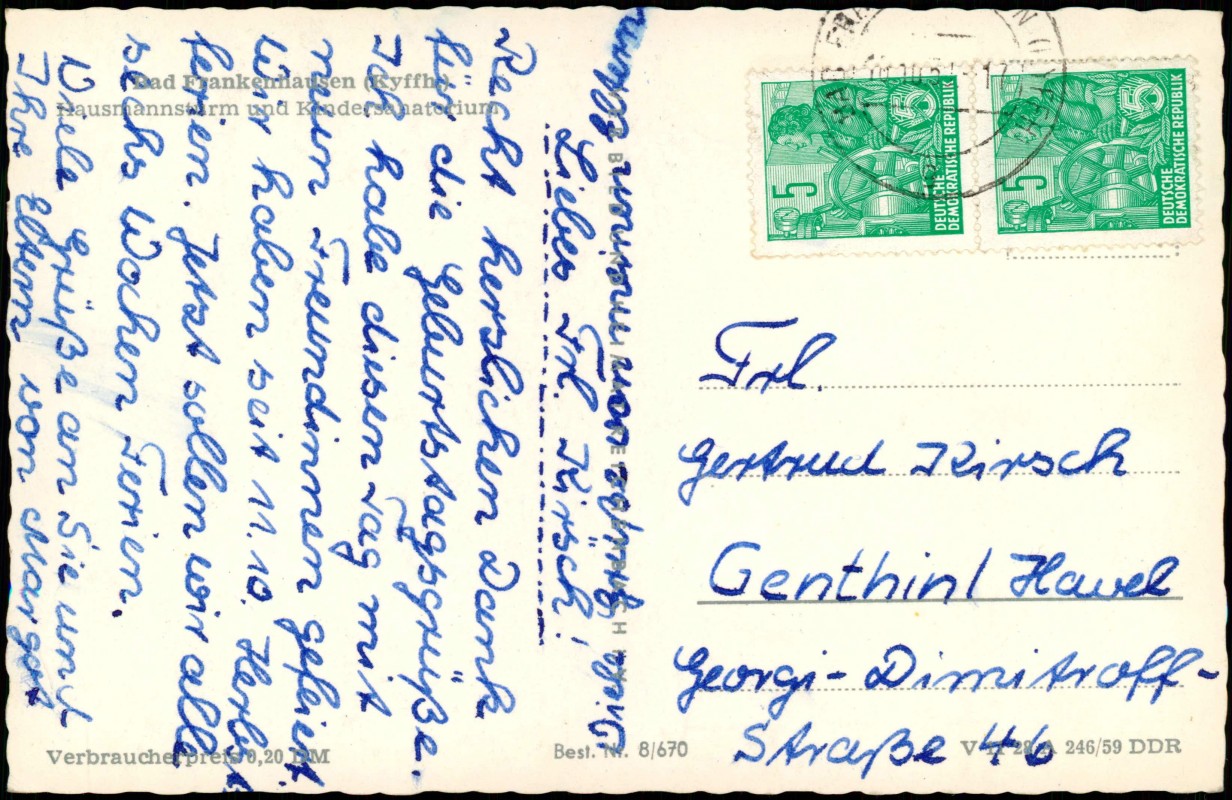 Bad Frankenhausen (Kyffh.)
Hausmannsturm und Kindersanatorium
Liebes Frl. Kirsch!
Recht herzlichen Dank
für die Geburtstagsgrüße.
Ich habe diesen Tag mit
meinen Freundinnen gefeiert.
Wir haben seit 11. 10. Herbst
ferien. Jetzt sollen wir alle
sechs Wochen Ferien.
Viele Grüße an Sie und
Ihre Eltern von Margot
Verbraucherpreis 0,20 DM
Best. Nr. 8/670
DEUTSCHE
DEMOKRATISCHE REPUBLIK
5
DEUTSCHE
DEMOKRATISCHE REPUBLIK
5
Frl.
Gertrud Kirsch
Genthin/ Havel
Georgi-Dimitroff-
Straße 46
246/59 DDR